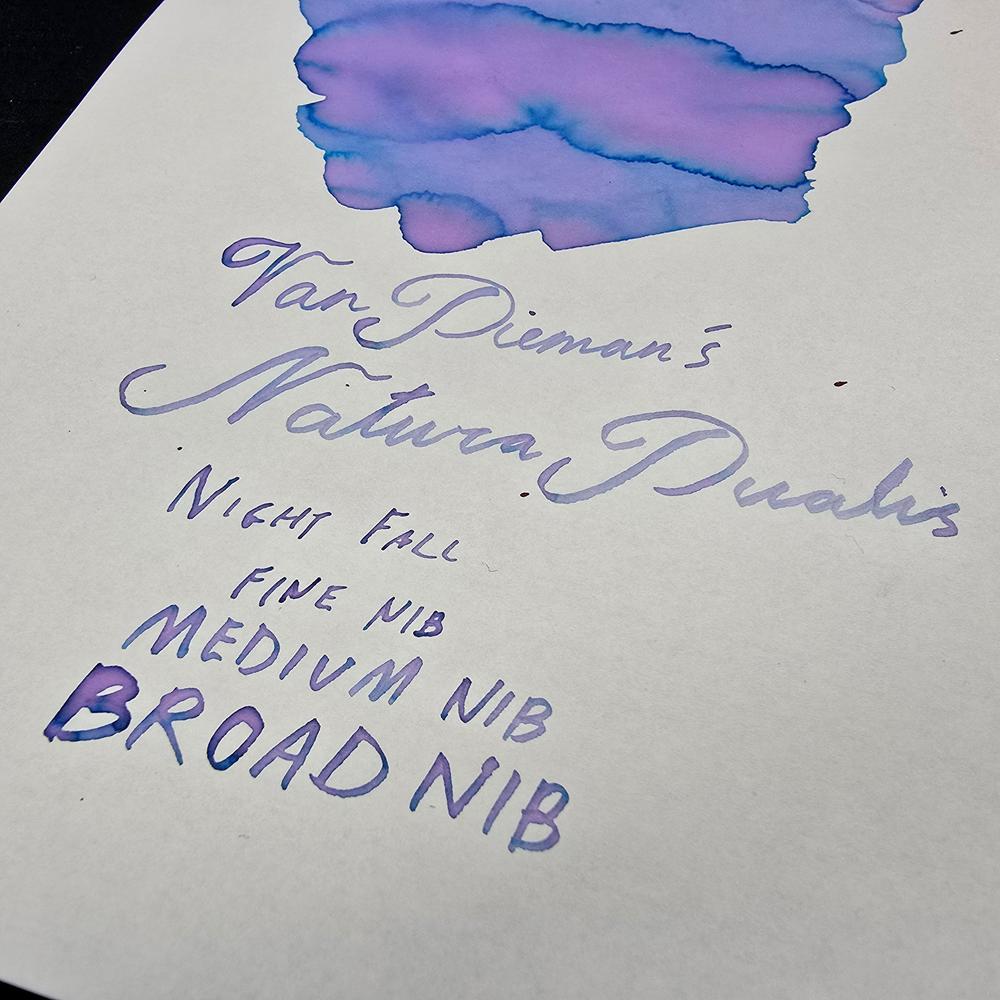 Van Dieman's
Natura Dualis
NIGHT FALL
FINE NIB
MEDIUM NIB
BROAD NIB